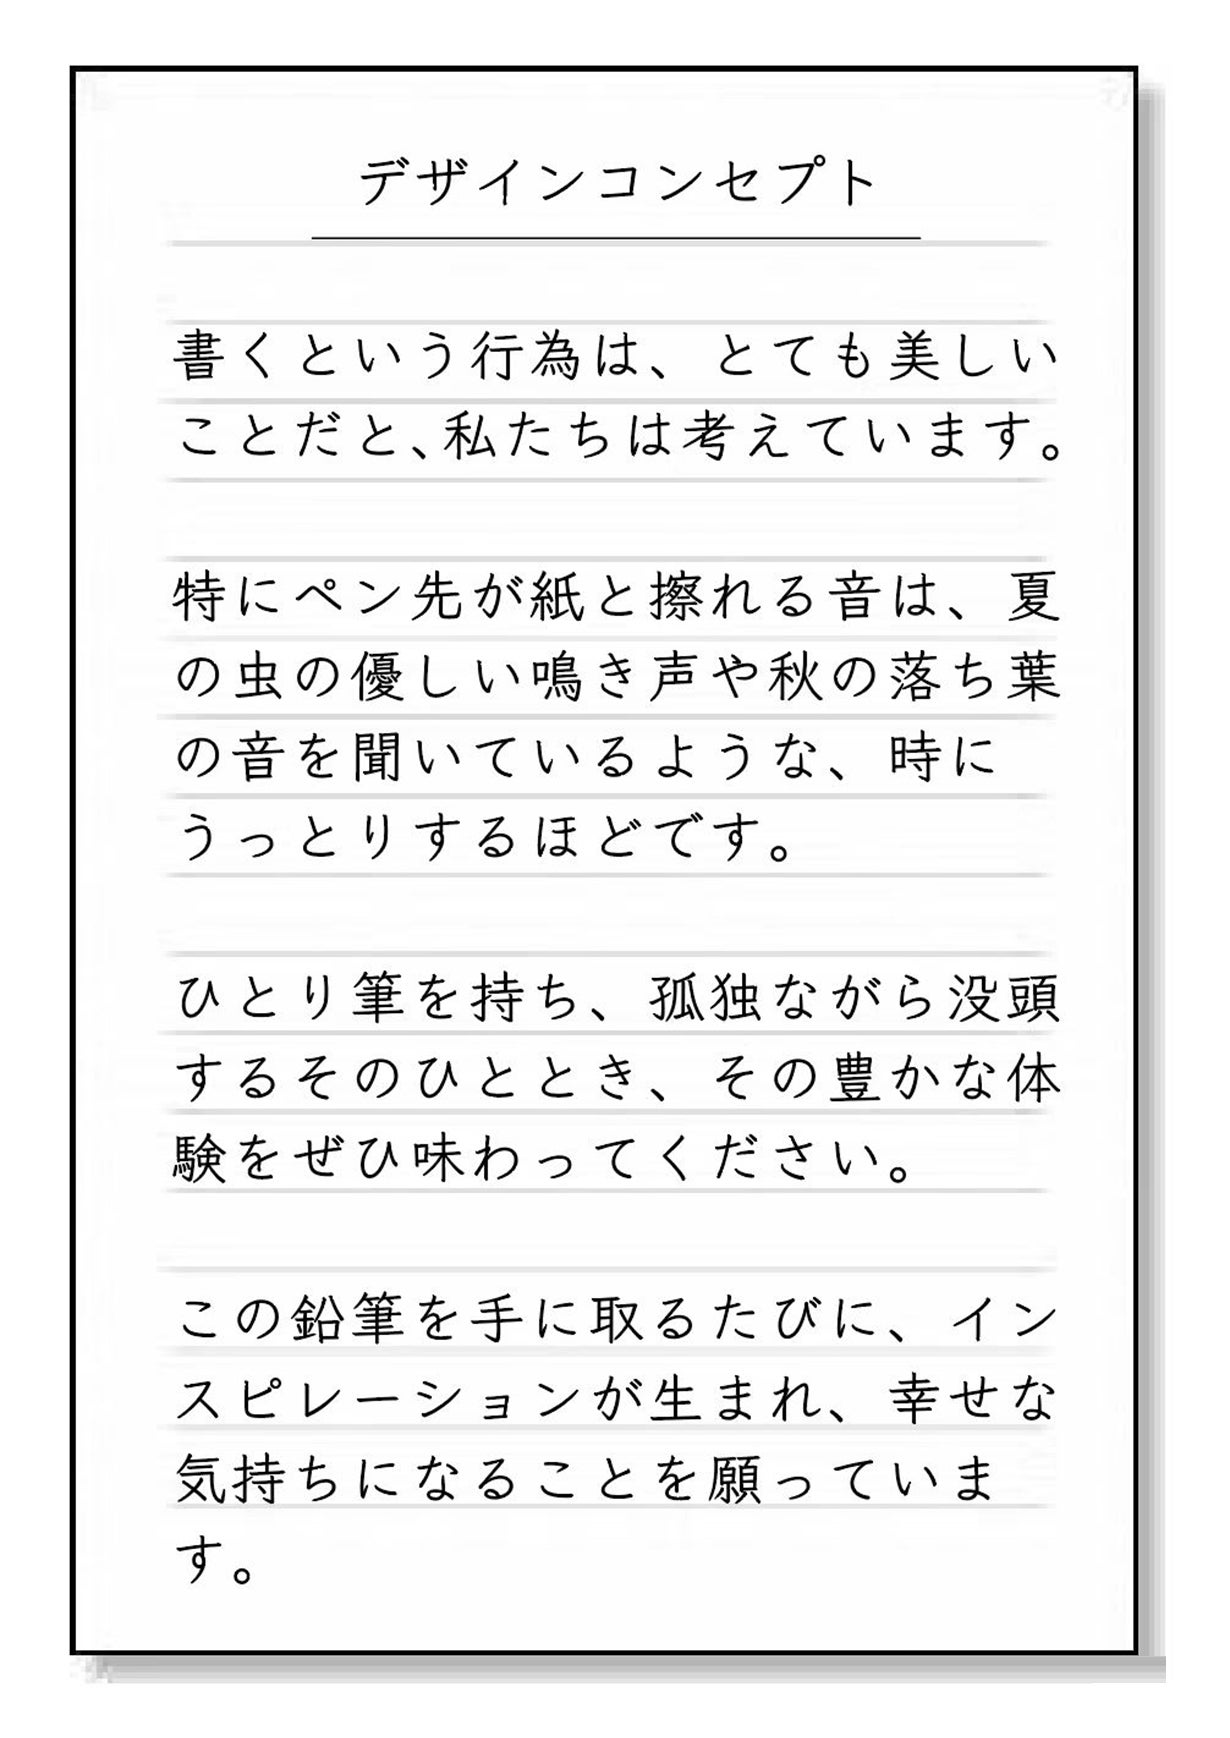 デザインコンセプト
書くという行為は、とても美しい
ことだと、私たちは考えています。
特にペン先が紙と擦れる音は、夏
の虫の優しい鳴き声や秋の落ち葉
の音を聞いているような、時に
うっとりするほどです。
ひとり筆を持ち、孤独ながら没頭
するそのひととき、その豊かな体
験をぜひ味わってください。
この鉛筆を手に取るたびに、イン
スピレーションが生まれ、幸せな
気持ちになることを願っていま
す。